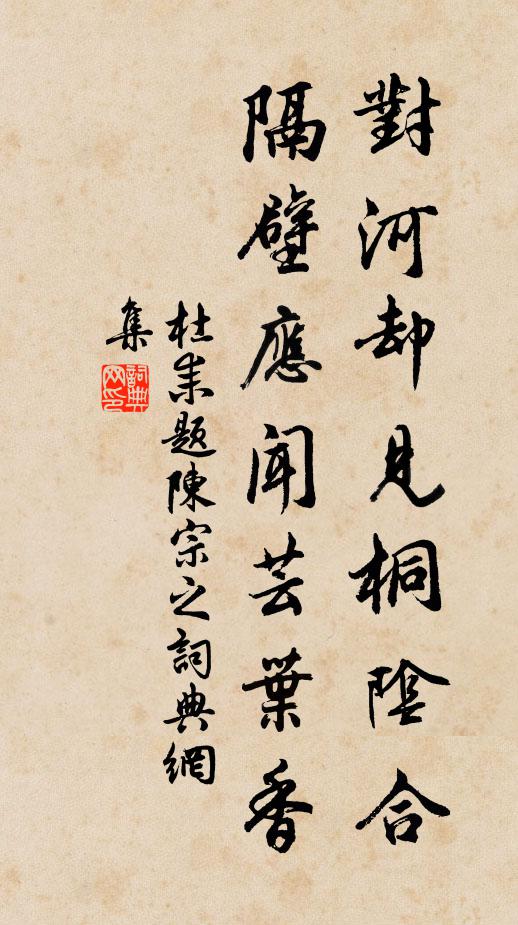 對河却見桐陰合
隔壁應聞芸葉香
杜耒題陳宗之詞典網
集
詞典
网印